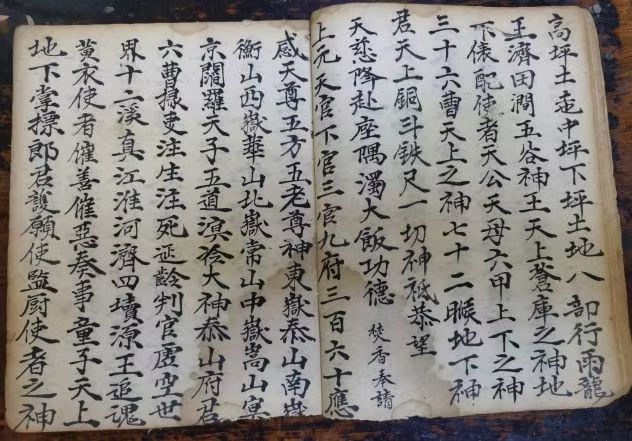 高坪土主中坪下坪土地八部行雨龍
王濟田潤五谷神王天上蒼庫之神地
下俵配使者天公天母六甲上下之神
三十六曹天上之神七十二睺地下神
君天上銅斗鉄尺一切神祗恭望
天慈降赴座隅濁大飯功德 焚香奉請
上元天官下官三官九府三百六十應
感天尊五方五老尊神東嶽泰山南嶽
衡山西嶽華山北嶽常山中嶽嵩山冥
京閻羅天子五道溟冷大神泰山府君
六曹掾吏注生注死延齡判官虛空世
界十二溪真江淮河濟四瀆源王追魂
黃衣使者催善催惡奏事童子天上
地下掌摽郎君護願使監厨使者之神